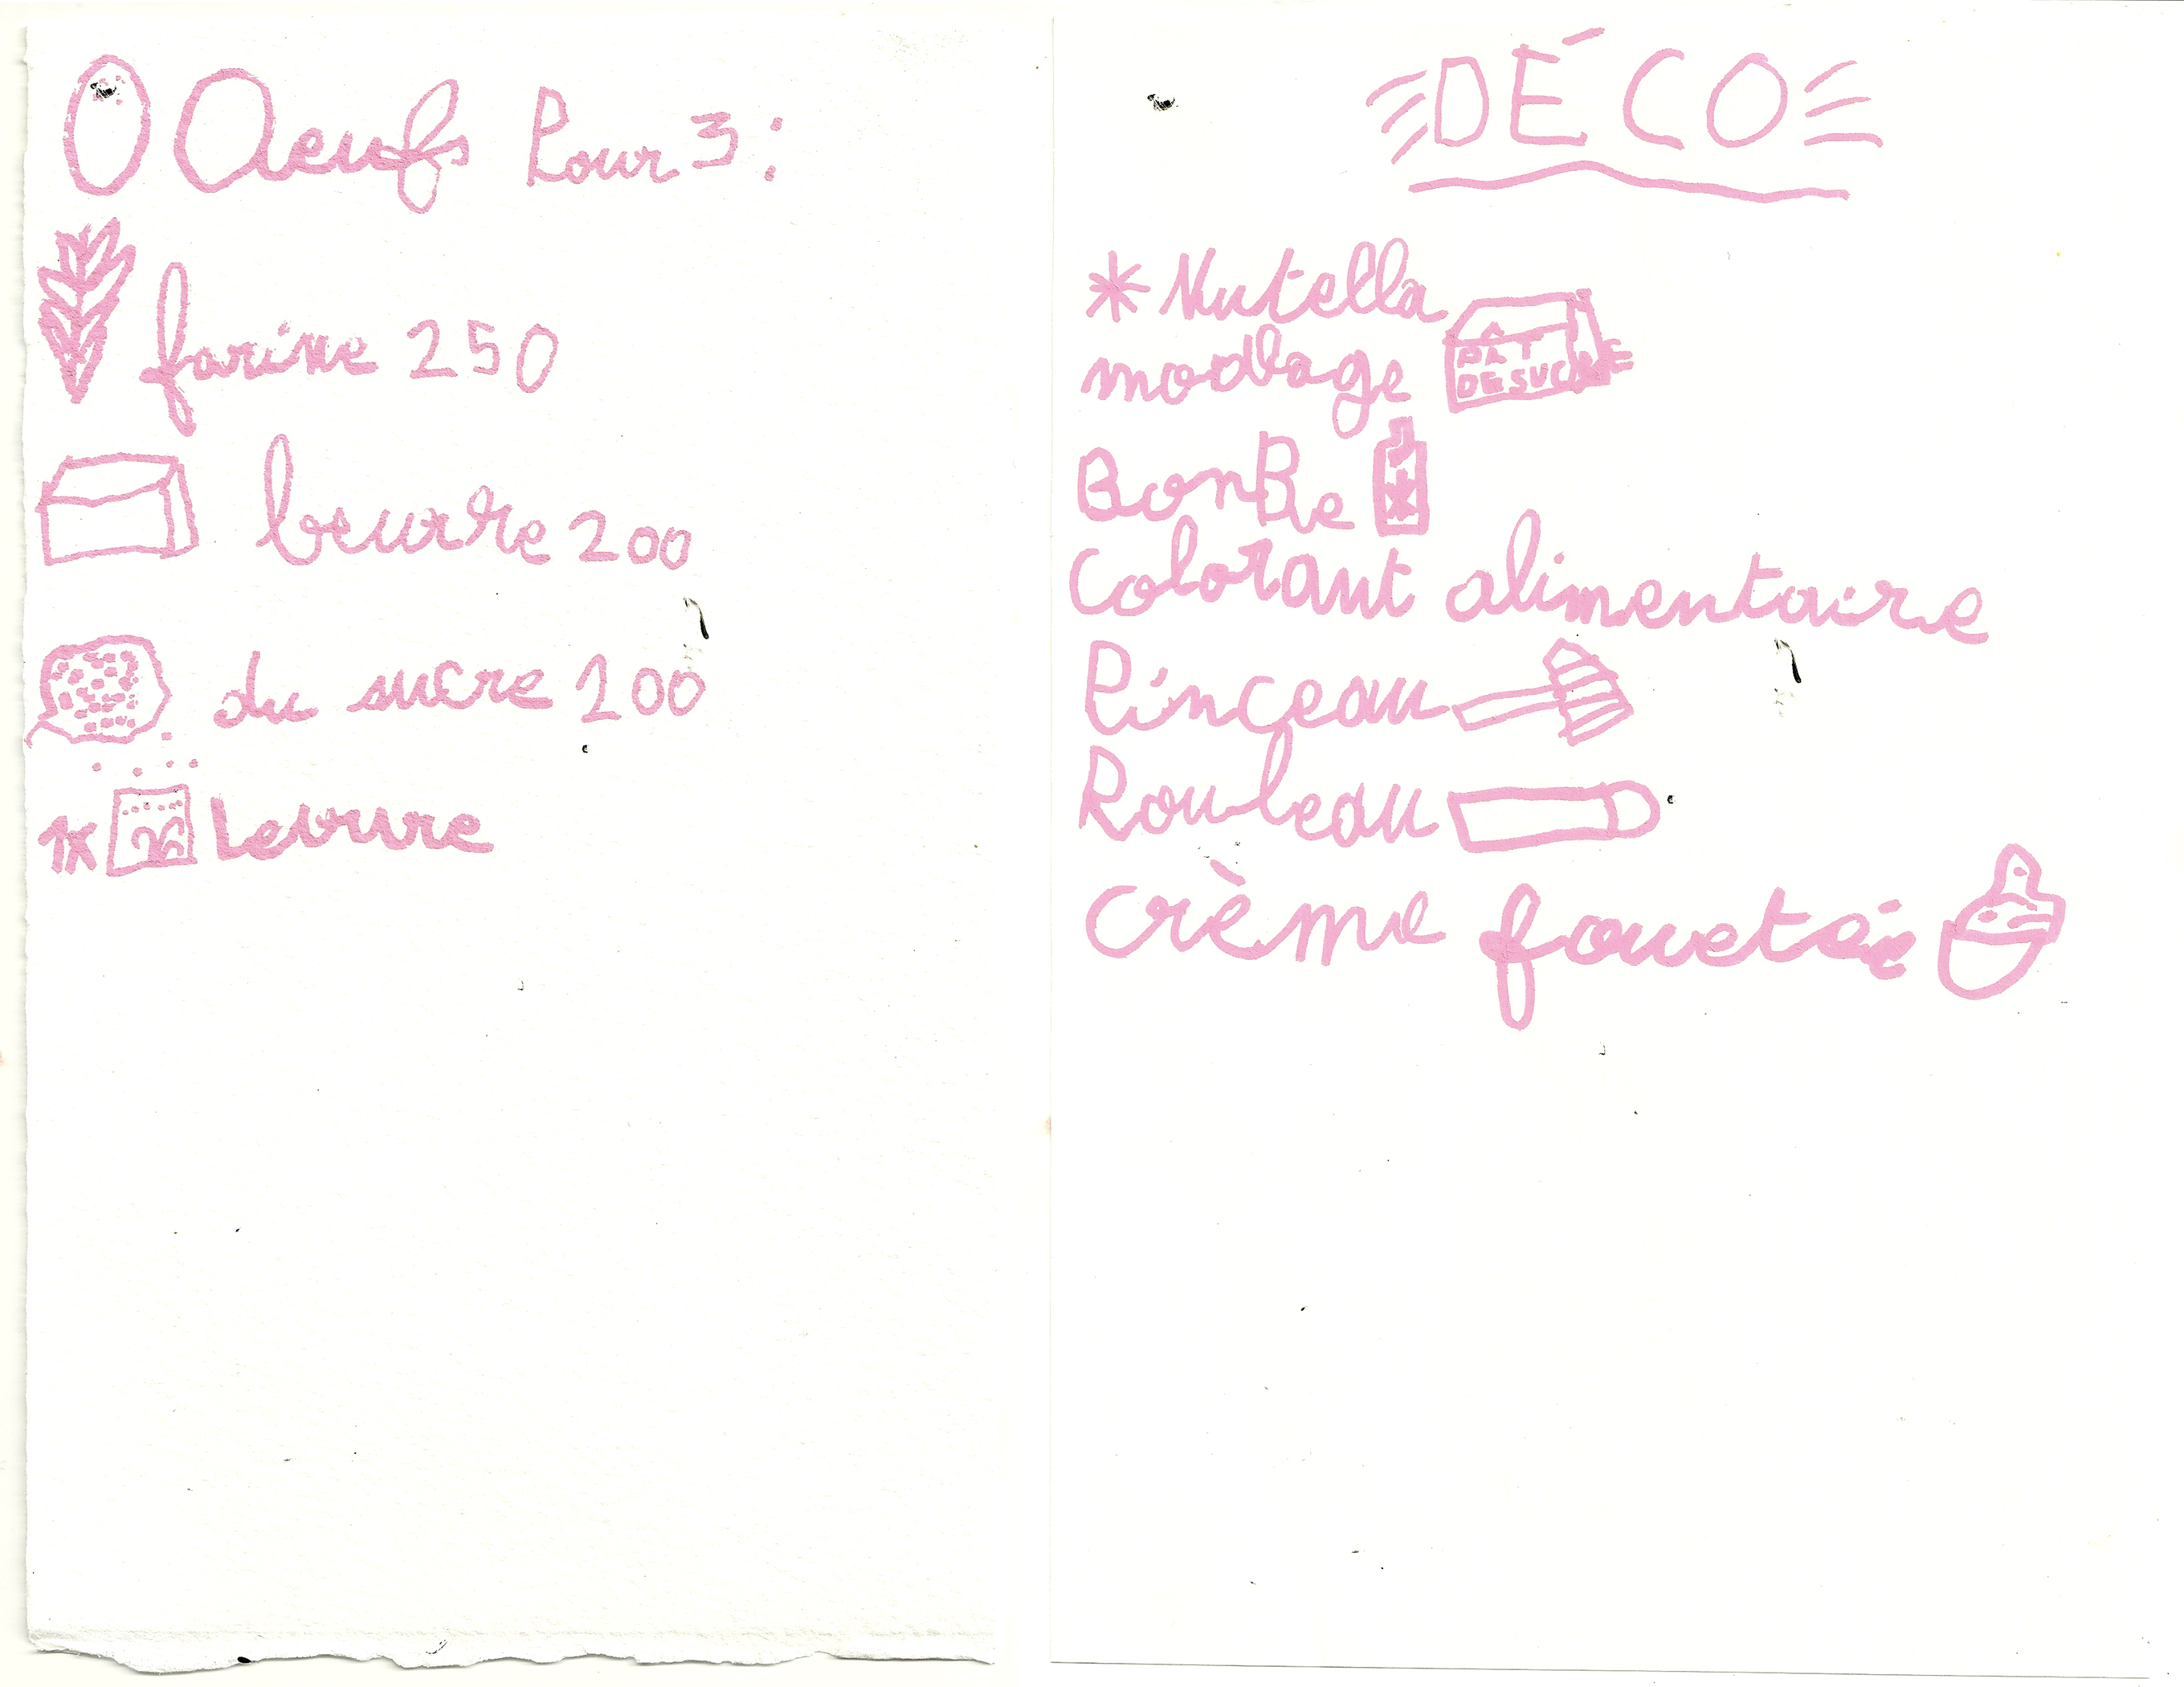 Oeufs Pour 3 :
farine 250
beurre 200
du sucre 200
1x Levure
DÉCO
* Nutella
modlage
PÂT
DE SUCRE
BonBe
Colorant alimentaire
Pinceau
Rouleau
crème foueteé